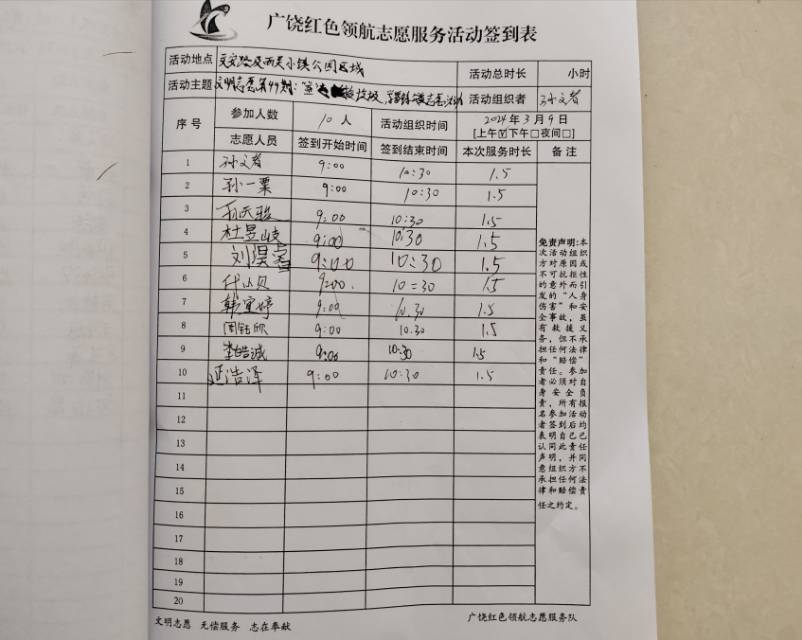 广饶红色领航志愿服务活动签到表
活动地点 文安路及西关小镇公园区域 活动总时长 小时
活动主题 文明志愿第99期： 垃圾 活动组织者 孙文者
序号 参加人数 10人 活动组织时间 2024年3月9日
[上午☑下午□夜间□]
志愿人员 签到开始时间 签到结束时间 本次服务时长 备注
1 孙文者 9:00 10:30 1.5
2 孙一粟 9:00 10:30 1.5
3 9:00 10:30 1.5
4 杜昱岐 9:00 10:30 1.5
5 刘淏 9:00 10:30 1.5
6 代小贝 9:00 10:30 1.5
7 韩宜婷 9:00 10.30 1.5
8 周钰欣 9:00 10.30 1.5
9 李皓诚 9:00 10:30 1.5
10 延浩泽 9:00 10:30 1.5
11
12
13
14
15
16
17
18
19
20
免责声明:本
次活动组织
方对原因或
不可抗拒性
的意外而引
发的“人身
伤害”和安
全事故，虽
有救援义
务，但不承
担任何法律
和“赔偿”
责任。参加
者必须对自
身安全负
责，所有报
名参加活动
者签到后均
表明自己已
认同此责任
声明，并同
意组织方不
承担任何法
律和赔偿责
任之约定。
文明志愿 无偿服务 志在奉献 广饶红色领航志愿服务队